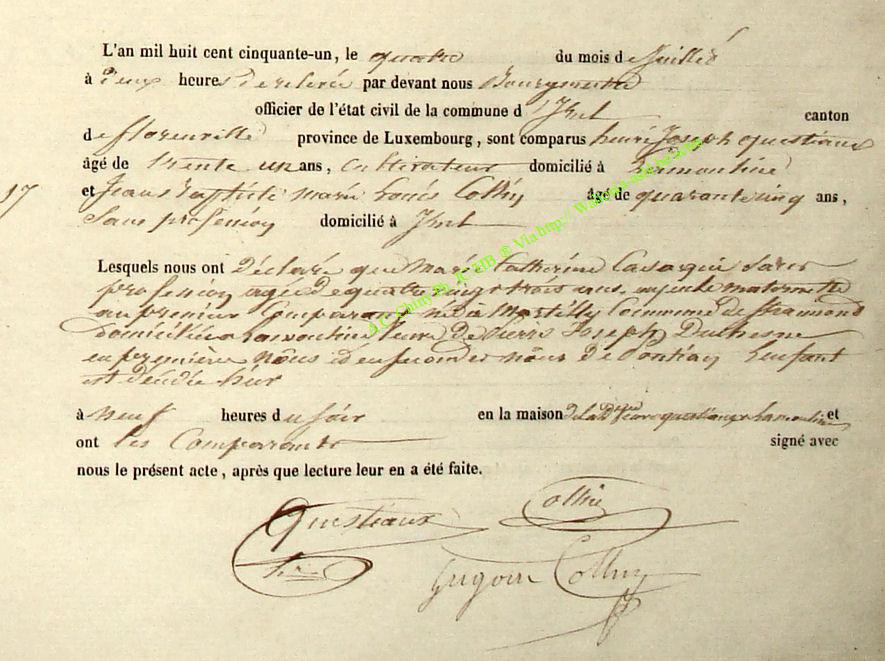 L'an mil huit cent cinquante-un, le quatre du mois de Juillet
à deux heures de relevée par devant nous Bourgmestre
officier de l'état civil de la commune d' canton
de florenville province de Luxembourg, sont comparus henri Joseph questiaux
âgé de trente un ans, Cultivateur domicilié à
17
et Jean Baptiste marie Louis Collin âgé de quarante cinq ans,
Sans profession domicilié à
Lesquels nous ont Déclaré que Marie Catherine Sans
profession agée de quatre vingt trois ans, ayeule maternelle
au premier Comparant née à Martilly Commune de Straimont
domiciliée à Lamouline veuve de Pierre Joseph Duchesne
en première nôces et en secondes nôces de Pontian Lenfant
est décédée hier
à neuf heures du soir en la maison de la veuve questiaux à Lamouline et
ont les Comparants signé avec
nous le présent acte, après que lecture leur en a été faite.
Questiaux Collin
Grégoire Collin
A.C. Chiny Ph. JC HB © Via http://